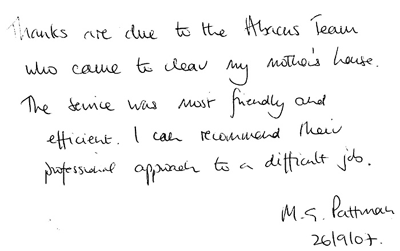 Thanks are due to the Abacus Team
who came to clear my mother's house.
The service was most friendly and
efficient. I can recommend their
professional approach to a difficult job.
M. G. Pattman
26/9/07.